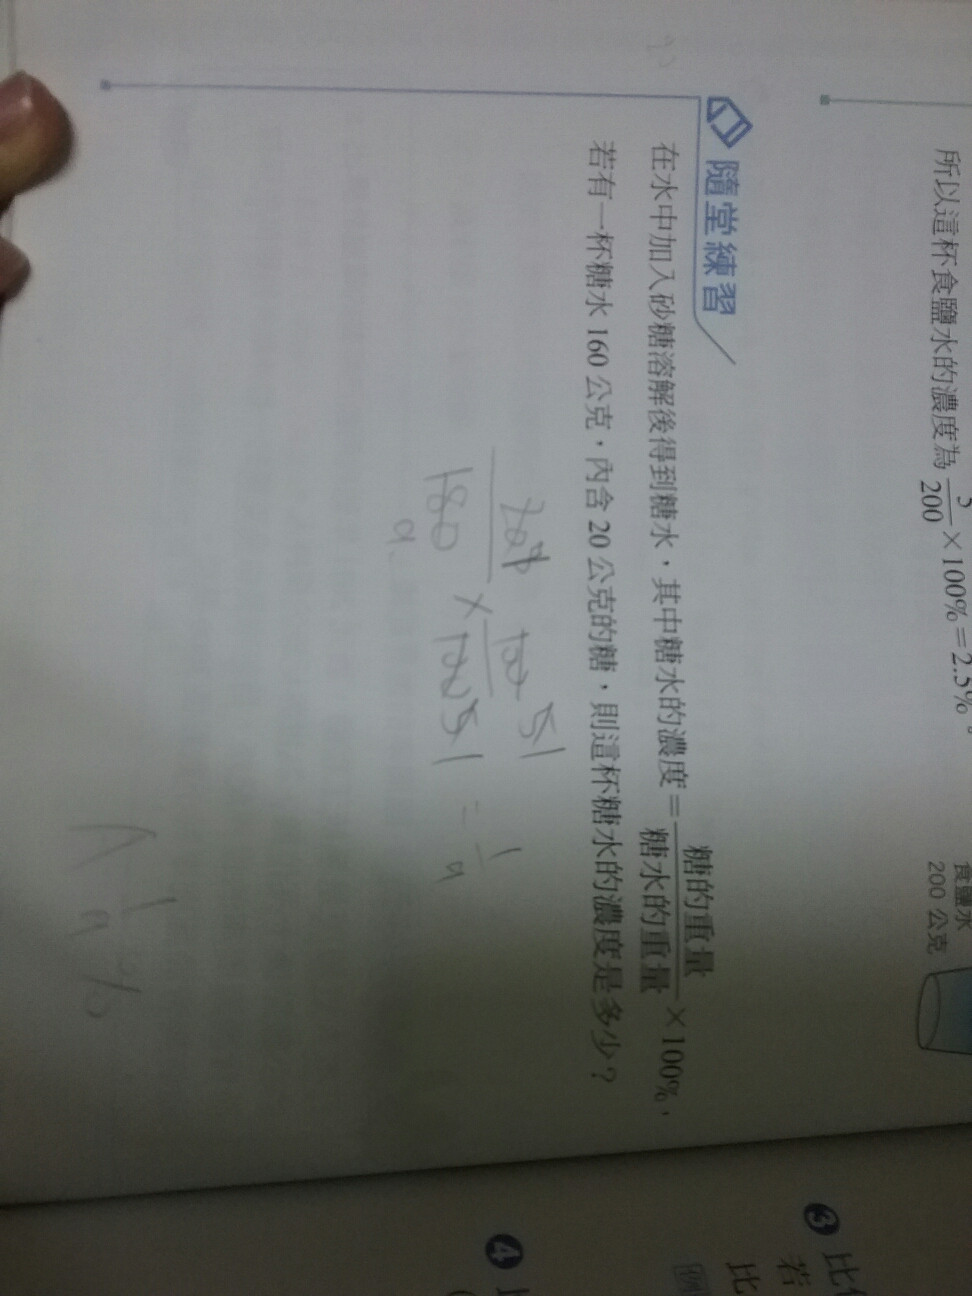 所以這杯食鹽水的濃度為 3/200 ×100%=2.5%。
食鹽水
200 公克
隨堂練習
在水中加入砂糖溶解後得到糖水，其中糖水的濃度= 糖的重量/糖水的重量 ×100%，
若有一杯糖水 160 公克，內含 20 公克的糖，則這杯糖水的濃度是多少？
20 100
180 × 100 = 1/9
A 1/9 %
❸ 比
若
比
例
❹